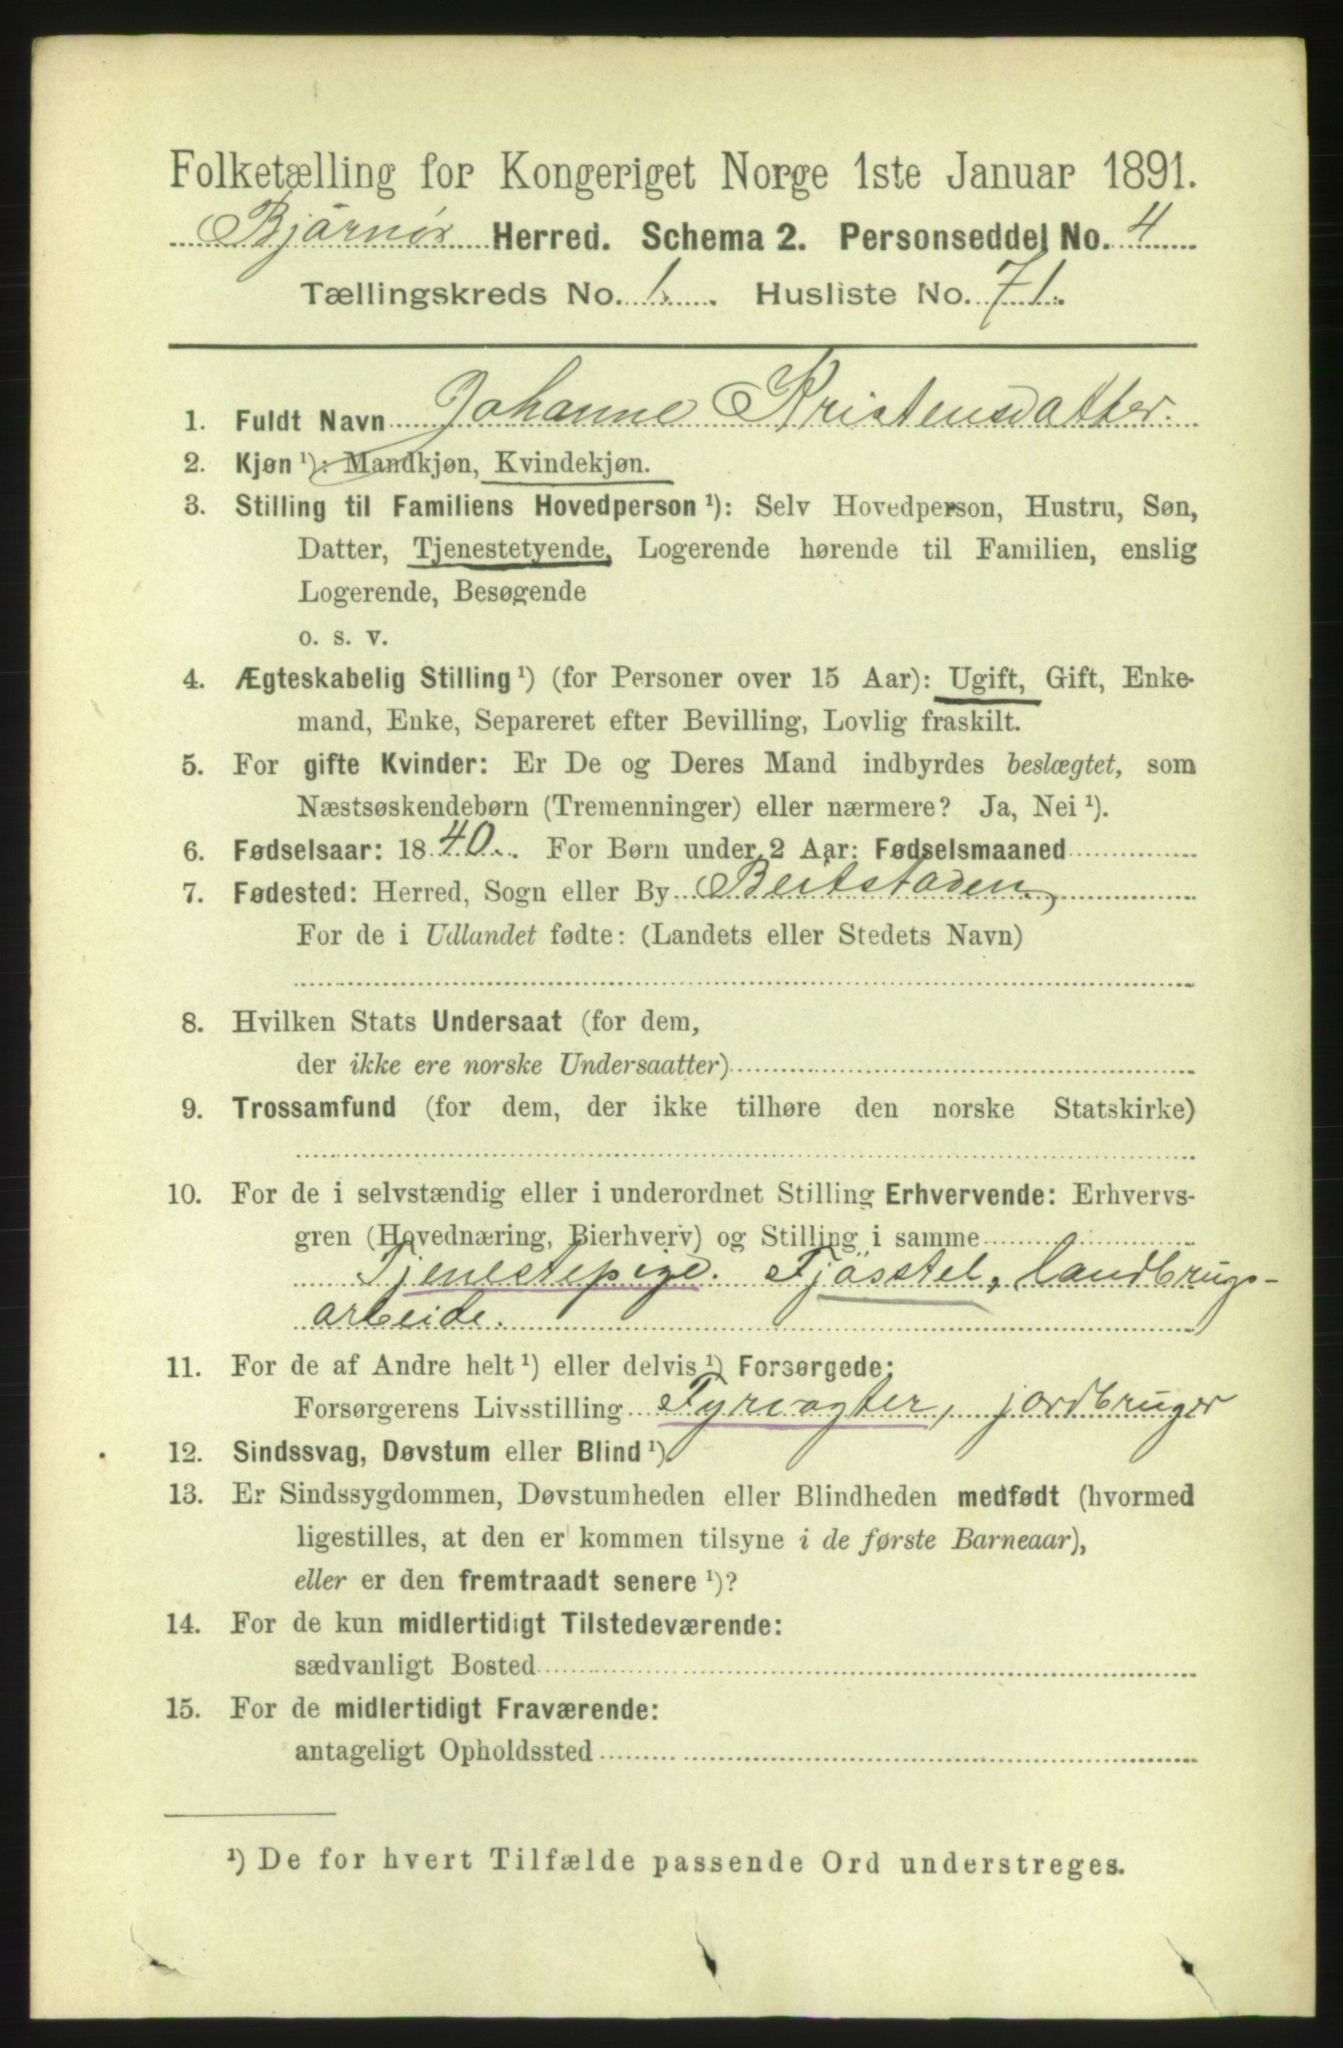 Folketælling for Kongeriget Norge 1ste Januar 1891.
Bjørnør Herred. Schema 2. Personseddel No. 4
Tællingskreds No. 1. Husliste No. 71.
1. Fuldt Navn Johanne Kristensdatter.
2. Kjøn ¹): Mandkjøn, Kvindekjøn.
3. Stilling til Familiens Hovedperson ¹): Selv Hovedperson, Hustru, Søn,
Datter, Tjenestetyende, Logerende hørende til Familien, enslig
Logerende, Besøgende
o. s. v.
4. Ægteskabelig Stilling ¹) (for Personer over 15 Aar): Ugift, Gift, Enke-
mand, Enke, Separeret efter Bevilling, Lovlig fraskilt.
5. For gifte Kvinder: Er De og Deres Mand indbyrdes beslægtet, som
Næstsøskendebørn (Tremenninger) eller nærmere? Ja, Nei ¹).
6. Fødselsaar: 1840. For Børn under 2 Aar: Fødselsmaaned
7. Fødested: Herred, Sogn eller By Beitstaden
For de i Udlandet fødte: (Landets eller Stedets Navn)
8. Hvilken Stats Undersaat (for dem,
der ikke ere norske Undersaatter)
9. Trossamfund (for dem, der ikke tilhøre den norske Statskirke)
10. For de i selvstændig eller i underordnet Stilling Erhvervende: Erhvervs-
gren (Hovednæring, Bierhverv) og Stilling i samme
Tjenestepige. Fjösstel, landbrugs-
arbeide.
11. For de af Andre helt ¹) eller delvis ¹) Forsørgede:
Forsørgerens Livsstilling Fyrvogter, jordbruger
12. Sindssvag, Døvstum eller Blind ¹).
13. Er Sindssygdommen, Døvstumheden eller Blindheden medfødt (hvormed
ligestilles, at den er kommen tilsyne i de første Barneaar),
eller er den fremtraadt senere ¹)?
14. For de kun midlertidigt Tilstedeværende:
sædvanligt Bosted
15. For de midlertidigt Fraværende:
antageligt Opholdssted
¹) De for hvert Tilfælde passende Ord understreges.